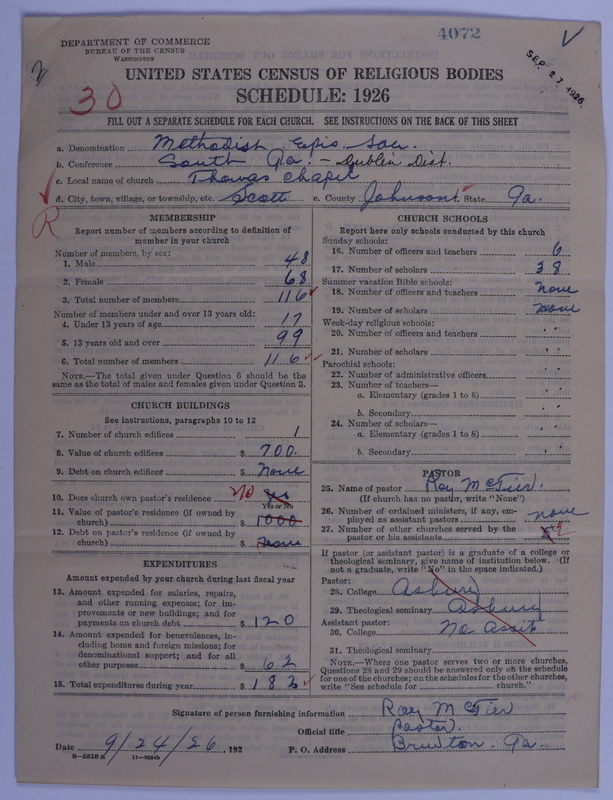 4072
DEPARTMENT OF COMMERCE
BUREAU OF THE CENSUS
WASHINGTON
SEP 27 1926
2
30
UNITED STATES CENSUS OF RELIGIOUS BODIES
SCHEDULE: 1926
FILL OUT A SEPARATE SCHEDULE FOR EACH CHURCH. SEE INSTRUCTIONS ON THE BACK OF THIS SHEET
a. Denomination Methodist Epis. Sou.
b. Conference South Ga. - Dublin Dist.
c. Local name of church Thomas Chapel
d. City, town, village, or township, etc. Scott e. County Johnson State Ga.
R
MEMBERSHIP
Report number of members according to definition of
member in your church
Number of members, by sex:
1. Male 48
2. Female 68
3. Total number of members 116
Number of members under and over 13 years old:
4. Under 13 years of age 17
5. 13 years old and over 99
6. Total number of members 116
NOTE.—The total given under Question 6 should be the
same as the total of males and females given under Question 3.
CHURCH BUILDINGS
See instructions, paragraphs 10 to 12
7. Number of church edifices 1
8. Value of church edifices $ 700.
9. Debt on church edifices $ None
10. Does church own pastor's residence NO Yes
Yes or No
11. Value of pastor's residence (if owned by
church) $ 1000
12. Debt on pastor's residence (if owned by
church) $ None
EXPENDITURES
Amount expended by your church during last fiscal year
13. Amount expended for salaries, repairs,
and other running expenses; for im-
provements or new buildings; and for
payments on church debt $ 120
14. Amount expended for benevolences, in-
cluding home and foreign missions; for
denominational support; and for all
other purposes $ 62
15. Total expenditures during year $ 182
CHURCH SCHOOLS
Report here only schools conducted by this church
Sunday schools:
16. Number of officers and teachers 6
17. Number of scholars 38
Summer vacation Bible schools:
18. Number of officers and teachers none
19. Number of scholars none
Week-day religious schools:
20. Number of officers and teachers " "
21. Number of scholars " "
Parochial schools:
22. Number of administrative officers " "
23. Number of teachers—
a. Elementary (grades 1 to 8) " "
b. Secondary " "
24. Number of scholars—
a. Elementary (grades 1 to 8) " "
b. Secondary " "
PASTOR
25. Name of pastor Roy McTier.
(If church has no pastor, write "None")
26. Number of ordained ministers, if any, em-
ployed as assistant pastors none
27. Number of other churches served by the
pastor or his assistants
If pastor (or assistant pastor) is a graduate of a college or
theological seminary, give name of institution below. (If
not a graduate, write "No" in the space indicated.)
Pastor:
28. College Asbury
29. Theological seminary Asbury
Assistant pastor:
30. College No Asst
31. Theological seminary
NOTE.—Where one pastor serves two or more churches,
Questions 28 and 29 should be answered only on the schedule
for one of the churches; on the schedules for the other churches,
write "See schedule for church."
Signature of person furnishing information Roy McTier
Official title Pastor.
Date 9/24/26, 192 P. O. Address Brewton, Ga.